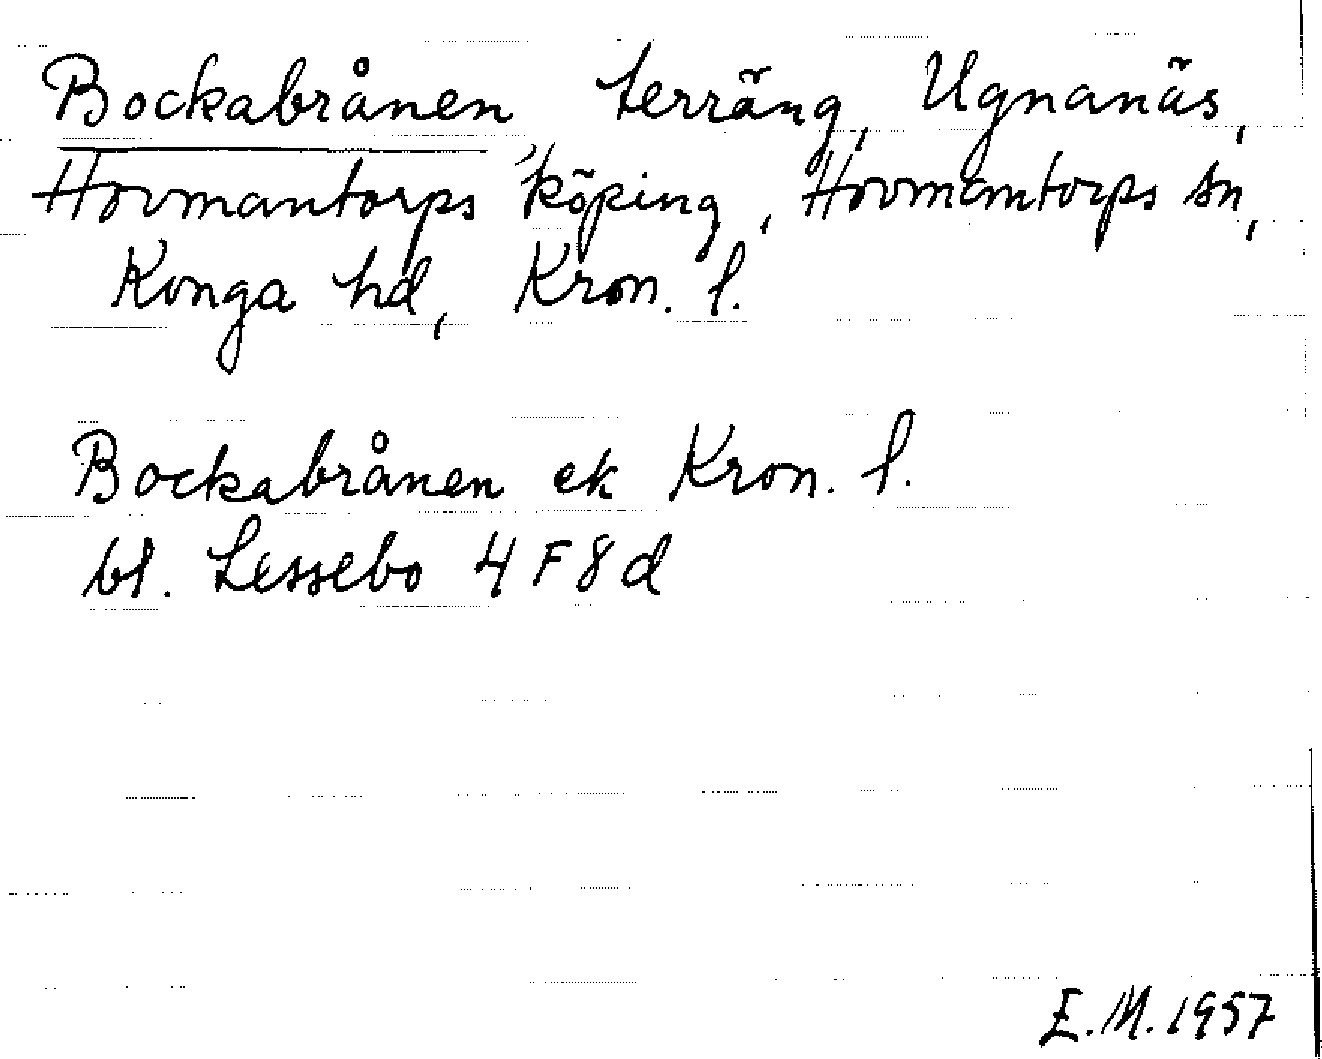 Bockabrånen, terräng, Ugnanäs,
Hovmantorps köping, Hovmantorps sn,
Konga hd, Kron. l.
Bockabrånen ek Kron. l.
bl. Lessebo 4 F 8 d
E.M. 1957